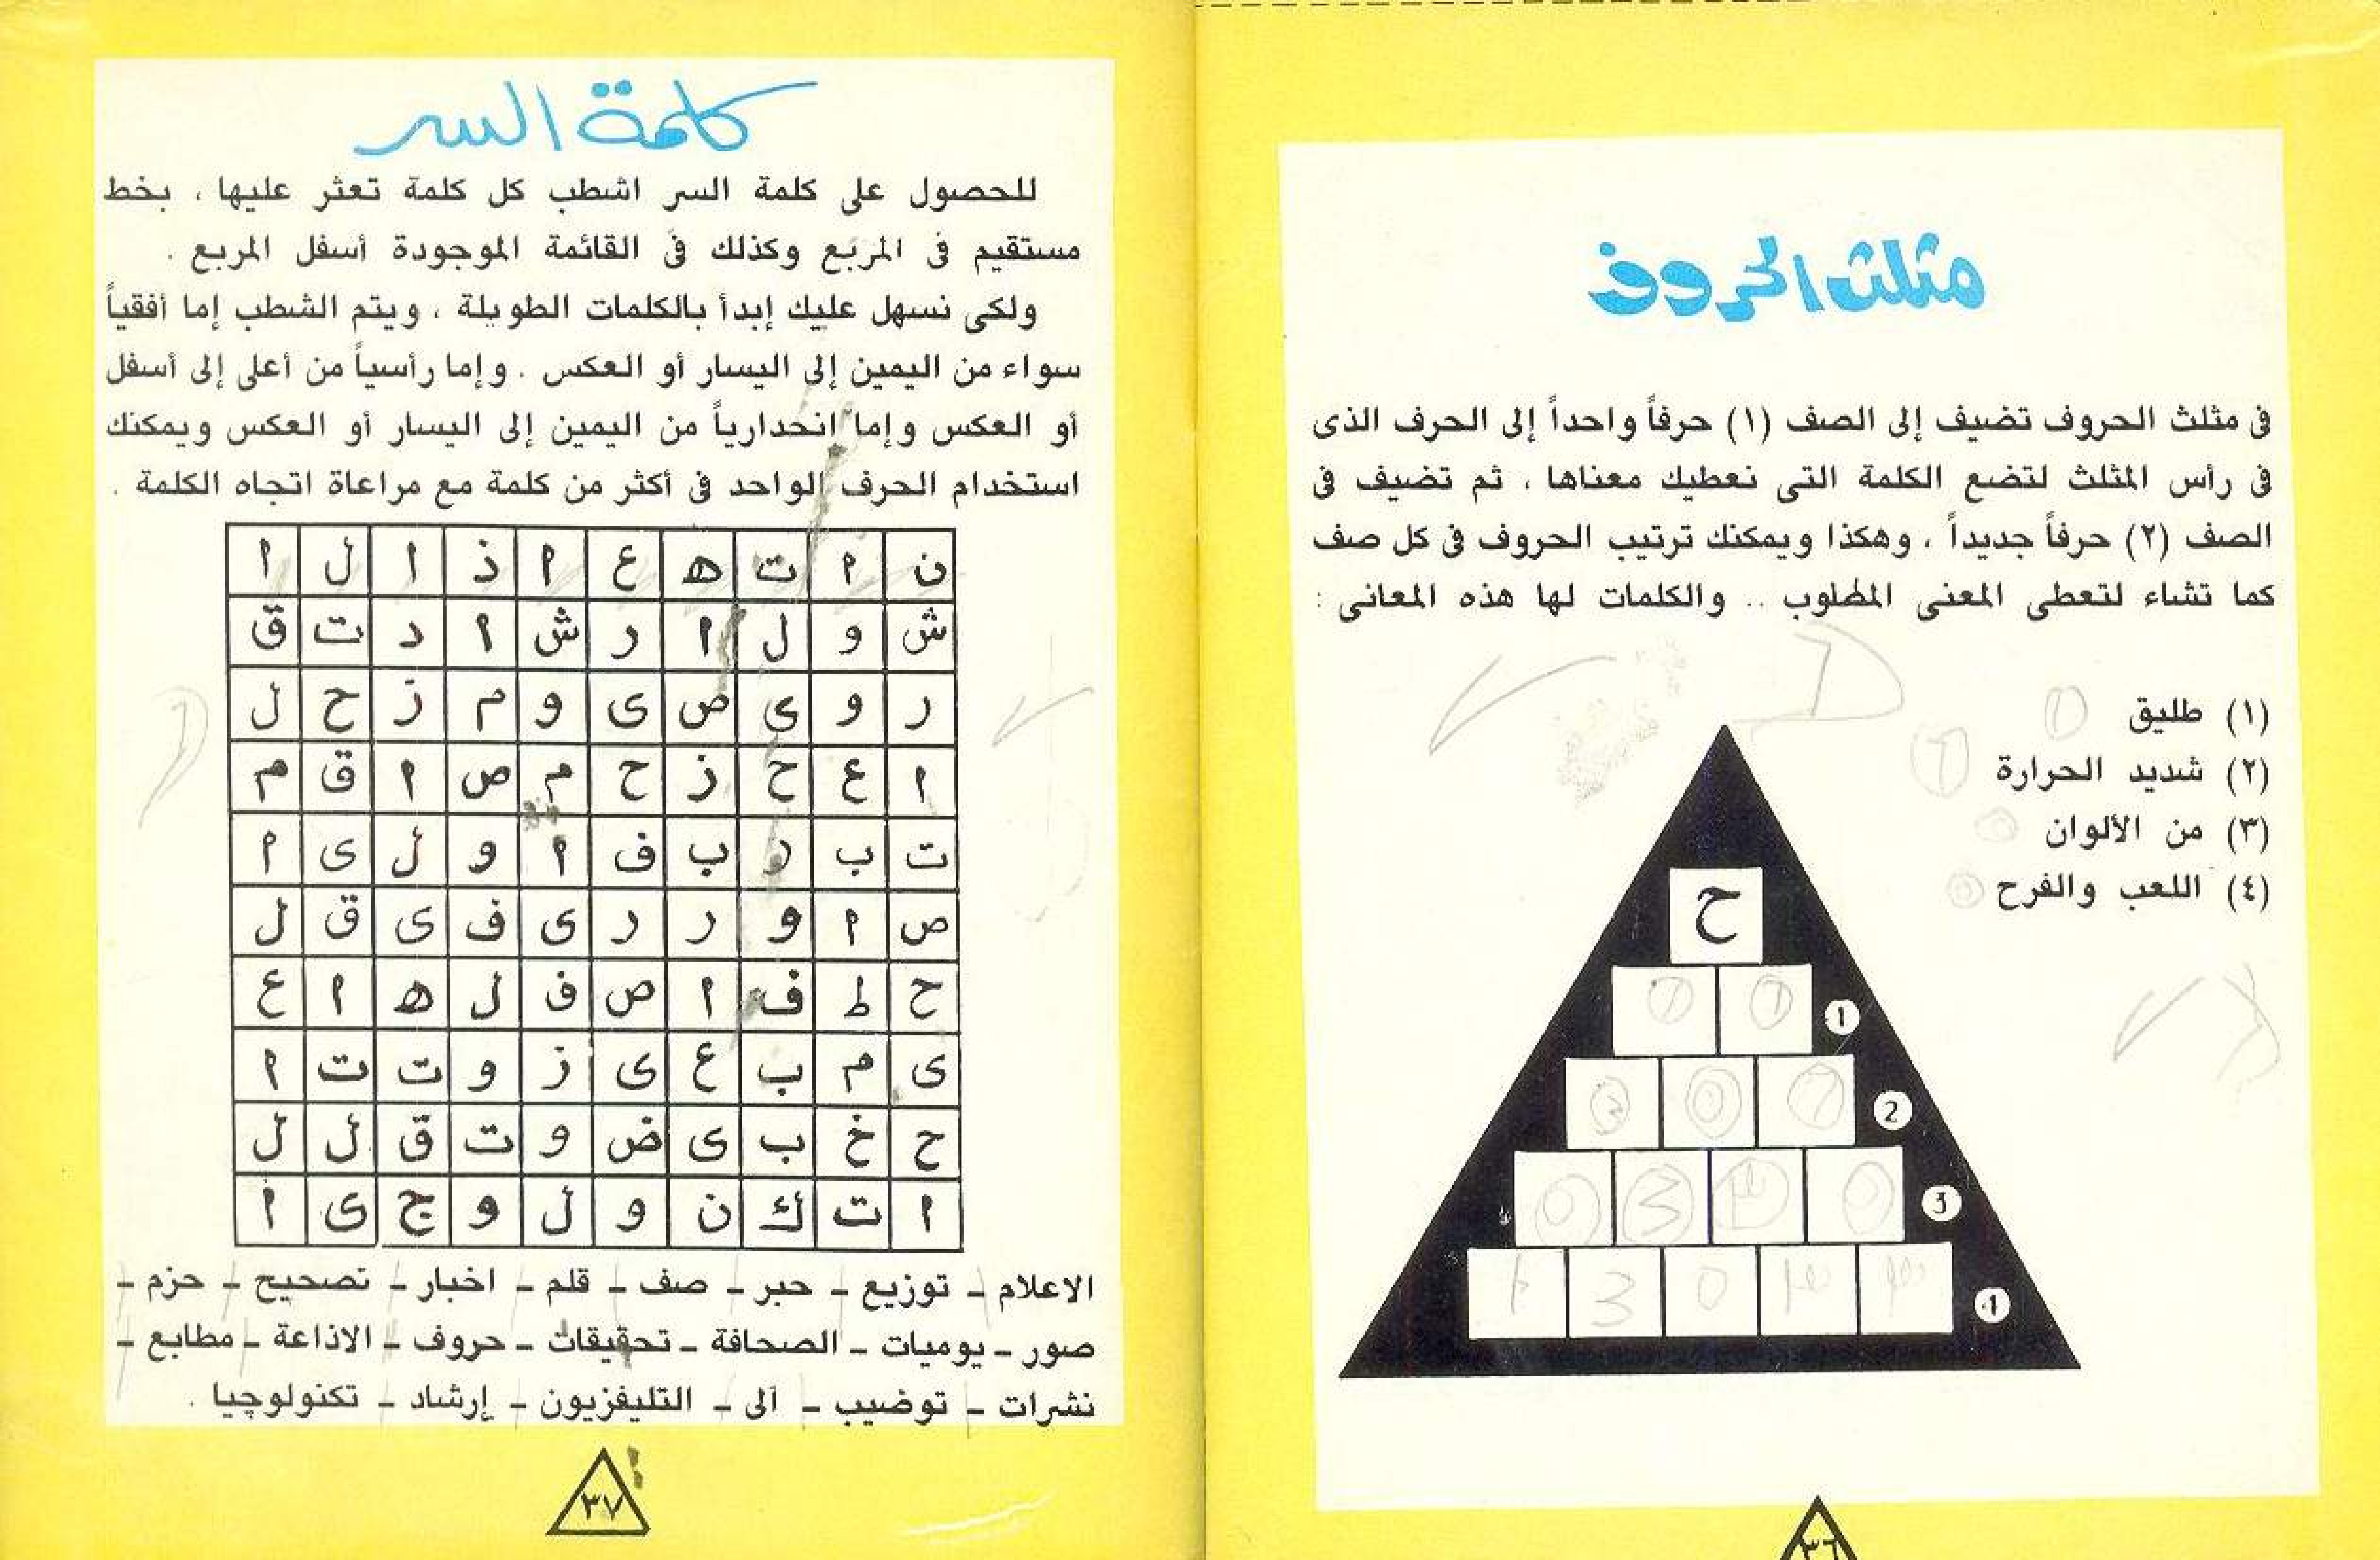 مثلث الحروف
فى مثلث الحروف تضيف إلى الصف (١) حرفاً واحداً إلى الحرف الذى
فى رأس المثلث لتضع الكلمة التى نعطيك معناها ، ثم تضيف فى
الصف (٢) حرفاً جديداً ، وهكذا ويمكنك ترتيب الحروف فى كل صف
كما تشاء لتعطى المعنى المطلوب .. والكلمات لها هذه المعانى :
(١) طليق
(٢) شديد الحرارة
(٣) من الألوان
(٤) اللعب والفرح
ح
1
2
3
4
٣٦
كلمة السر
للحصول على كلمة السر اشطب كل كلمة تعثر عليها ، بخط
مستقيم فى المربع وكذلك فى القائمة الموجودة أسفل المربع .
ولكى نسهل عليك إبدأ بالكلمات الطويلة ، ويتم الشطب إما أفقياً
سواء من اليمين إلى اليسار أو العكس . وإما رأسياً من أعلى إلى أسفل
أو العكس وإما إنحدارياً من اليمين إلى اليسار أو العكس ويمكنك
استخدام الحرف الواحد فى أكثر من كلمة مع مراعاة اتجاه الكلمة .
ن ا ت ه ع ا ذ ا ل ا
ش و ل ا ر ش ا د ت ق
ر و ى ص ى و م ز ح ل
ا ع ح ز ح م ص ا ق م
ت ب ر ب ف ا و ل ى ا
ص ا و ر ر ى ف ى ق ل
ح ط ف ا ص ف ل ه ا ع
ى م ب ع ى ز و ت ت ا
ح خ ب ى ض و ت ق ل ل
ا ت ك ن و ل و ج ى ا
الاعلام – توزيع – حبر – صف – قلم – اخبار – تصحيح – حزم –
صور – يوميات – الصحافة – تحقيقات – حروف – الاذاعة – مطابع –
نشرات – توضيب – آلى – التليفزيون – إرشاد – تكنولوچيا .
٣٧